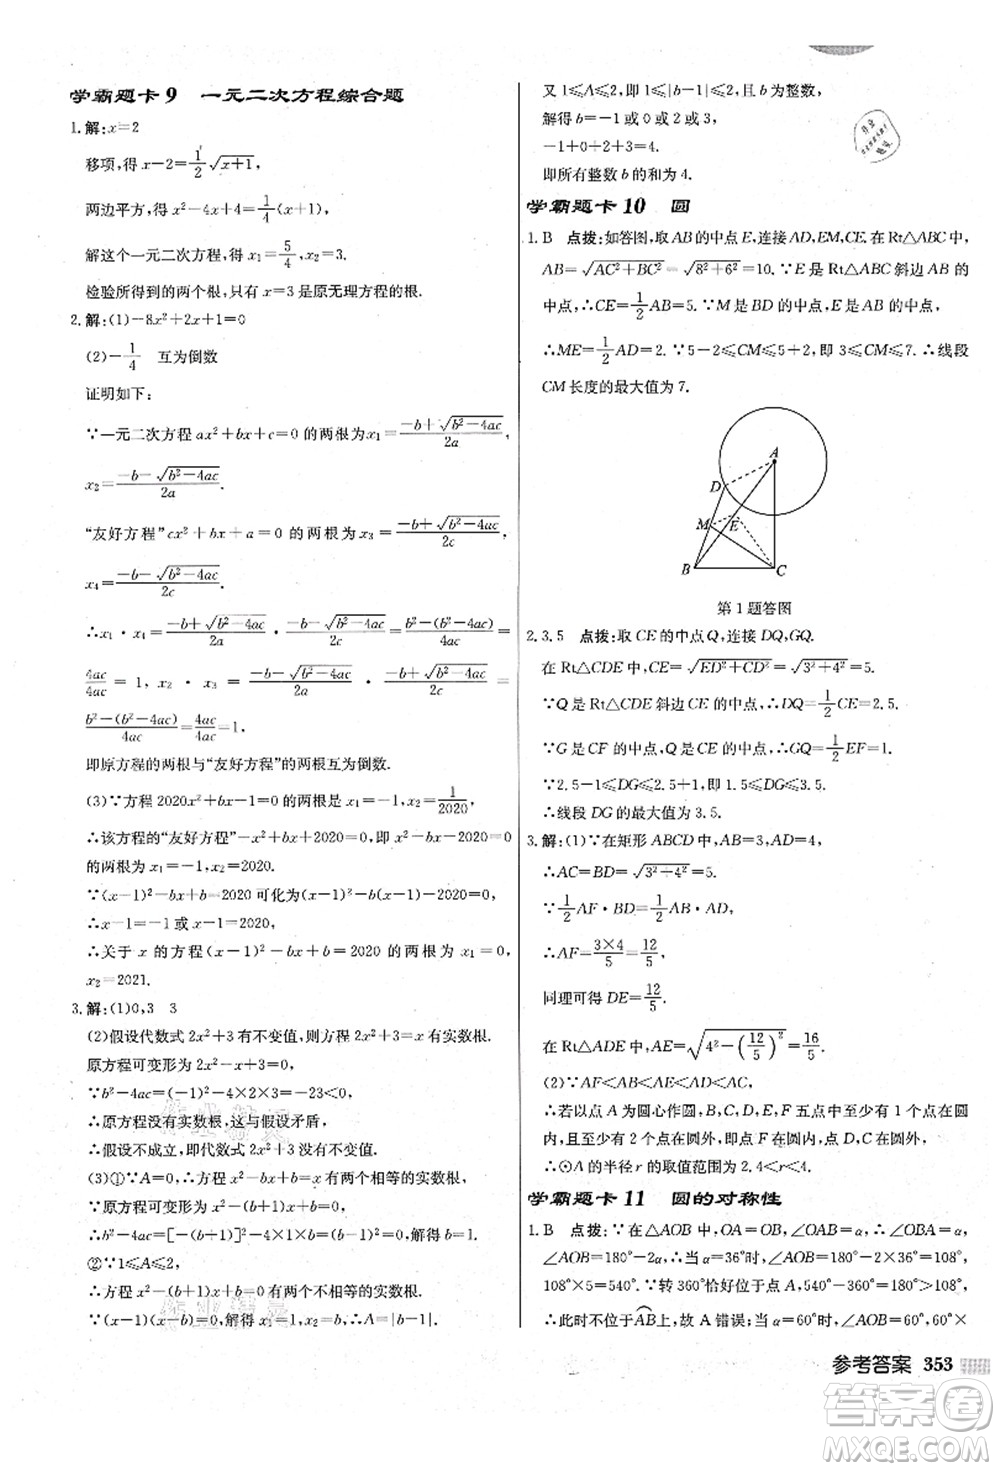 学霸题卡 9 一元二次方程综合题
1.解:x=2
移项,得 x-2=1/2√(x+1),
两边平方,得 x²-4x+4=1/4(x+1),
解这个一元二次方程,得 x₁=5/4,x₂=3.
检验所得到的两个根,只有 x=3 是原无理方程的根.
2.解:(1)-8x²+2x+1=0
(2)-1/4 互为倒数
证明如下:
∵一元二次方程 ax²+bx+c=0 的两根为 x₁=(-b+√(b²-4ac))/2a,
x₂=(-b-√(b²-4ac))/2a.
“友好方程”cx²+bx+a=0 的两根为 x₃=(-b+√(b²-4ac))/2c,
x₄=(-b-√(b²-4ac))/2c.
∴x₁·x₄=(-b+√(b²-4ac))/2a·(-b-√(b²-4ac))/2c=(b²-(b²-4ac))/4ac=
4ac/4ac=1,x₂·x₃=(-b-√(b²-4ac))/2a·(-b+√(b²-4ac))/2c=
(b²-(b²-4ac))/4ac=4ac/4ac=1.
即原方程的两根与“友好方程”的两根互为倒数.
(3)∵方程 2020x²+bx-1=0 的两根是 x₁=-1,x₂=1/2020,
∴该方程的“友好方程”-x²+bx+2020=0 即 x²-bx-2020=0
的两根为 x₁=-1,x₂=2020.
∵(x-1)²-bx+b=2020 可化为(x-1)²-b(x-1)-2020=0,
∴x-1=-1 或 x-1=2020,
∴关于 x 的方程(x-1)²-bx+b=2020 的两根为 x₁=0,
x₂=2021.
3.解:(1)0,3 3
(2)假设代数式 2x²+3 有不变值,则方程 2x²+3=x 有实数根.
原方程可变形为 2x²-x+3=0.
∵b²-4ac=(-1)²-4×2×3=-23<0,
∴原方程没有实数根,这与假设矛盾,
∴假设不成立,即代数式 2x²+3 没有不变值.
(3)①∵A=0,∴方程 x²-bx+b=x 有两个相等的实数根.
∵原方程可变形为 x²-(b+1)x+b=0,
∴b²-4ac=[-(b+1)]²-4×1×b=(b-1)²=0,∴b=1.
②∵1≤A≤2,
∴方程 x²-bx+b=x 有两个不相等的实数根.
∵(x-1)(x-b)=0,解得 x₁=1,x₂=b,∴A=|b-1|.
又 1≤A≤2,即 1≤|b-1|≤2,且 b 为整数,
解得 b=-1 或 0 或 2 或 3,
-1+0+2+3=4.
即所有整数 b 的和为 4.
学霸题卡 10 圆
1.B 点拨:如答图,取 AB 的中点 E,连接 AD,EM,CE.在 Rt△ABC 中,
AB=√(AC²+BC²)=√(8²+6²)=10.∵E 是 Rt△ABC 斜边 AB 的
中点,∴CE=1/2AB=5.∵M 是 BD 的中点,E 是 AB 的中点,
∴ME=1/2AD=2.∵5-2≤CM≤5+2,即 3≤CM≤7.∴线段
CM 长度的最大值为 7.
A
D
M
E
B
C
第 1 题答图
2.3.5 点拨:取 CE 的中点 Q,连接 DQ,GQ.
在 Rt△CDE 中,CE=√(ED²+CD²)=√(3²+4²)=5.
∵Q 是 Rt△CDE 斜边 CE 的中点,∴DQ=1/2CE=2.5.
∵G 是 CF 的中点,Q 是 CE 的中点,∴GQ=1/2EF=1.
∵2.5-1≤DG≤2.5+1,即 1.5≤DG≤3.5.
∴线段 DG 的最大值为 3.5.
3.解:(1)∵在矩形 ABCD 中,AB=3,AD=4,
∴AC=BD=√(3²+4²)=5.
∵1/2AF·BD=1/2AB·AD,
∴AF=3×4/5=12/5.
同理可得 DE=12/5.
在 Rt△ADE 中,AE=√(4²-(12/5)²)=16/5.
(2)∵AF<AB<AE<AD<AC,
∴若以点 A 为圆心作圆,B,C,D,E,F 五点中至少有 1 个点在圆
内,且至少有 2 个点在圆外,即点 F 在圆内,点 D,C 在圆外,
∴⊙A 的半径 r 的取值范围为 2.4<r<4.
学霸题卡 11 圆的对称性
1.B 点拨:∵在△AOB 中,OA=OB,∠OAB=α,∴∠OBA=α,
∴∠AOB=180°-2α,∴当 α=36°时,∠AOB=180°-2α=108°,
108°×5=540°.∵转 360°恰好位于点 A,540°-360°=180°>108°,
∴此时不位于AB上,故 A 错误;当 α=60°时,∠AOB=60°,60°×
参考答案 353
答案圈
MXQE.COM